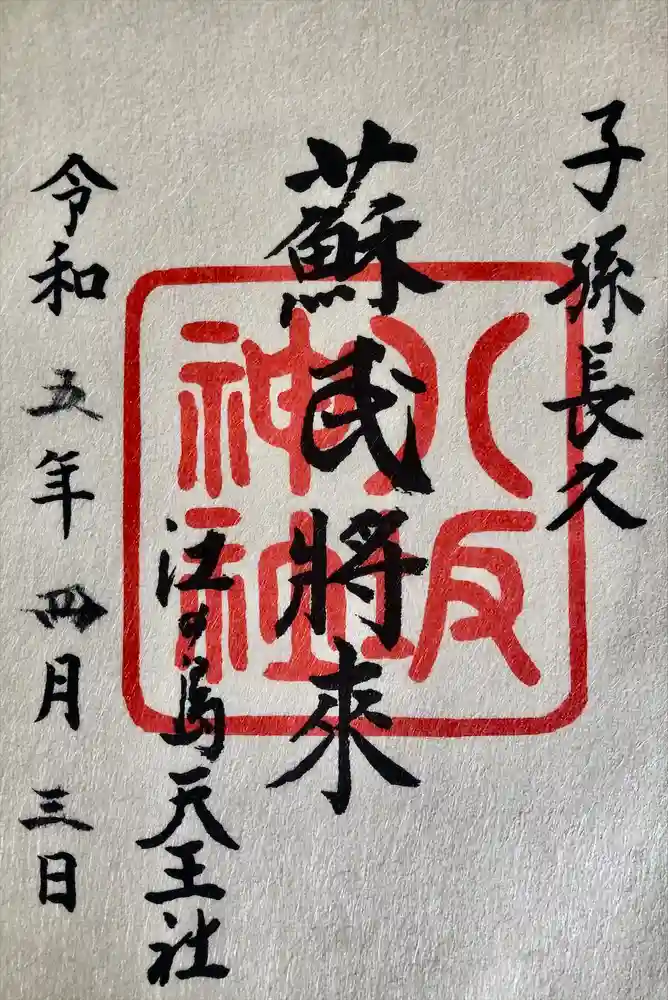 子孫長久
蘇民將來
八坂
神社
江の島天王社
令和五年四月三日